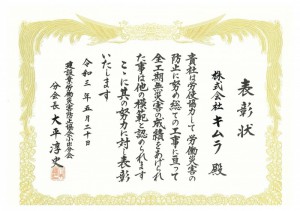 表彰状
株式会社 キムラ 殿
貴社は労使協力して労働災害の
防止に努め総ての工事に亘って
全工期無災害の成績をあげられ
た事は他の模範と認められます
ここに其の努力に対し表彰
いたします
令和三年五月二十日
建設業労働災害防止協会小田分会
分会長 大平淳史